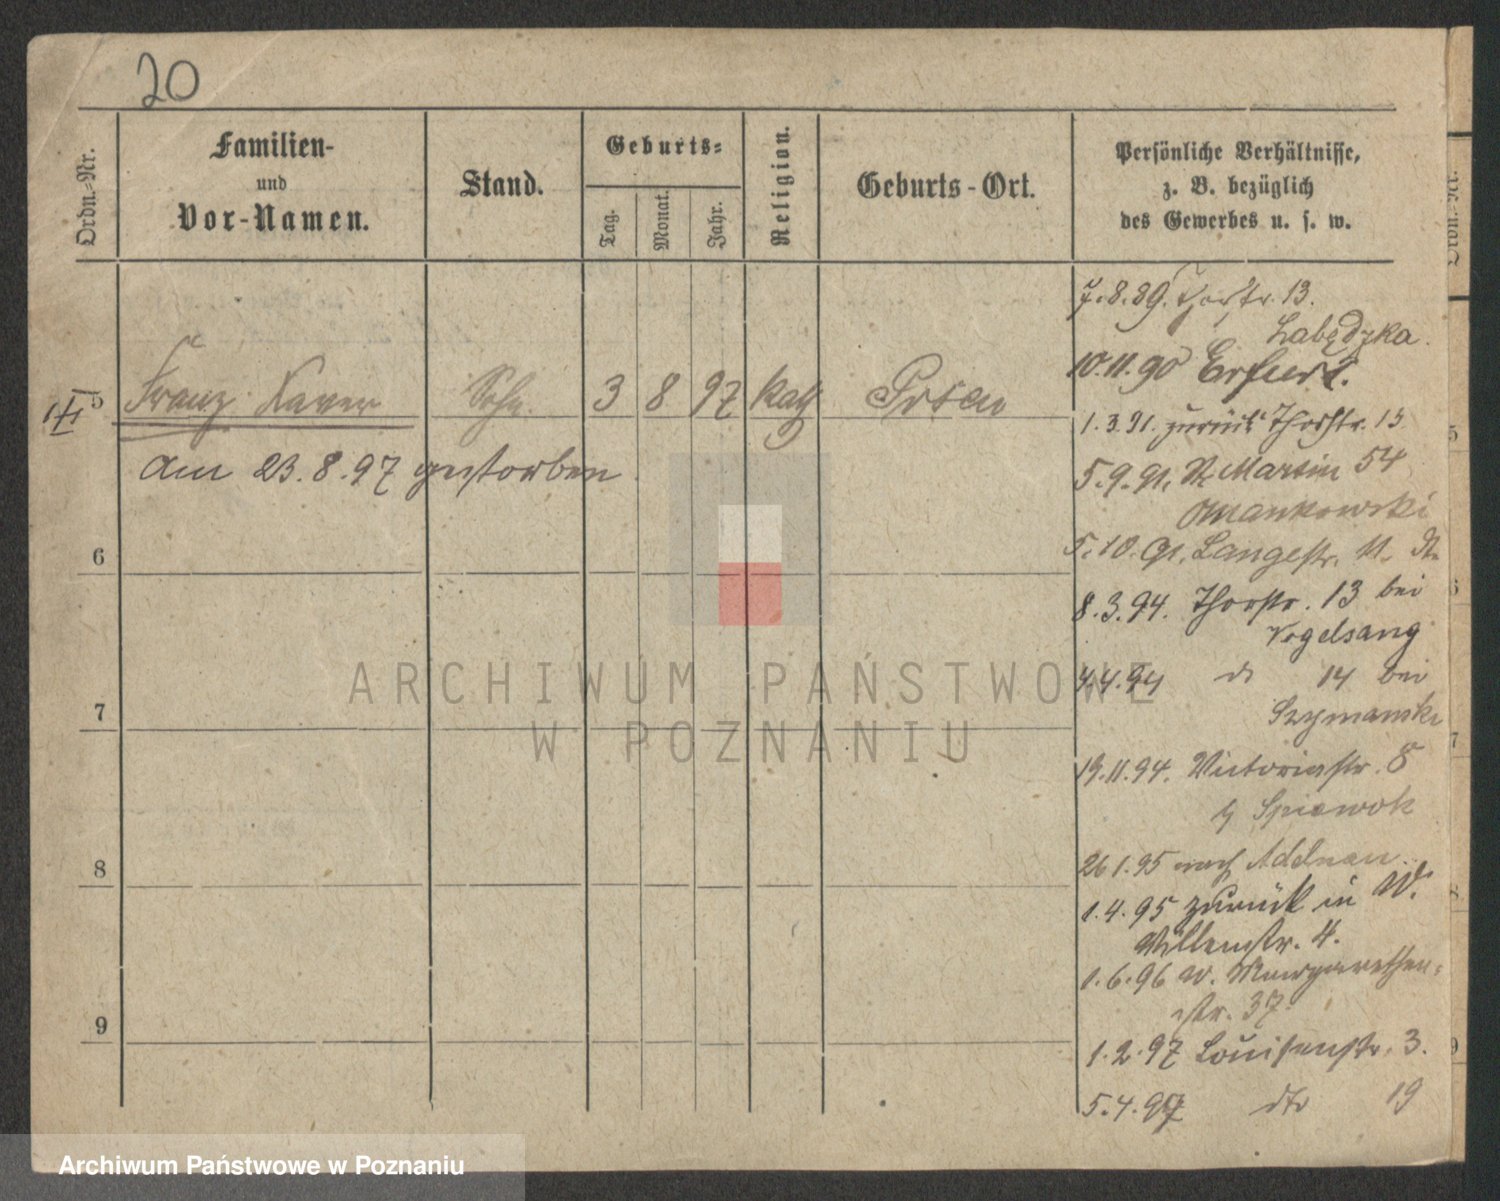 20
Ordn.-Nr.
Familien-
und
Vor-Namen.
Stand.
Geburts-
Tag.
Monat.
Jahr.
Religion.
Geburts-Ort.
Persönliche Verhältnisse,
z. B. bezüglich
des Gewerbes u. s. w.
5
Franz Xaver Sohn 3 8 97 kath Posen
am 23.8.97 gestorben
6
7
8
9
7.8.89. Thorstr. 13.
Labędzka.
10.11.90 Erfurt.
1.3.91. zurück Thorstr. 13
5.9.91. St Martin 54
Mankowski
5.10.91. Langestr. 11.
8.3.94. Thorstr. 13 bei
Vogelsang
4.4.94 do 14 bei
Szymanski
19.11.94. Victoriastr. 8
26.1.95 nach
1.4.95 zurück in W.
str. 4.
1.6.96 W. Margarethen-
str. 37
1.2.97 Louisenstr. 3.
5.4.97 dto 19
ARCHIWUM PAŃSTWOWE
W POZNANIU
Archiwum Państwowe w Poznaniu